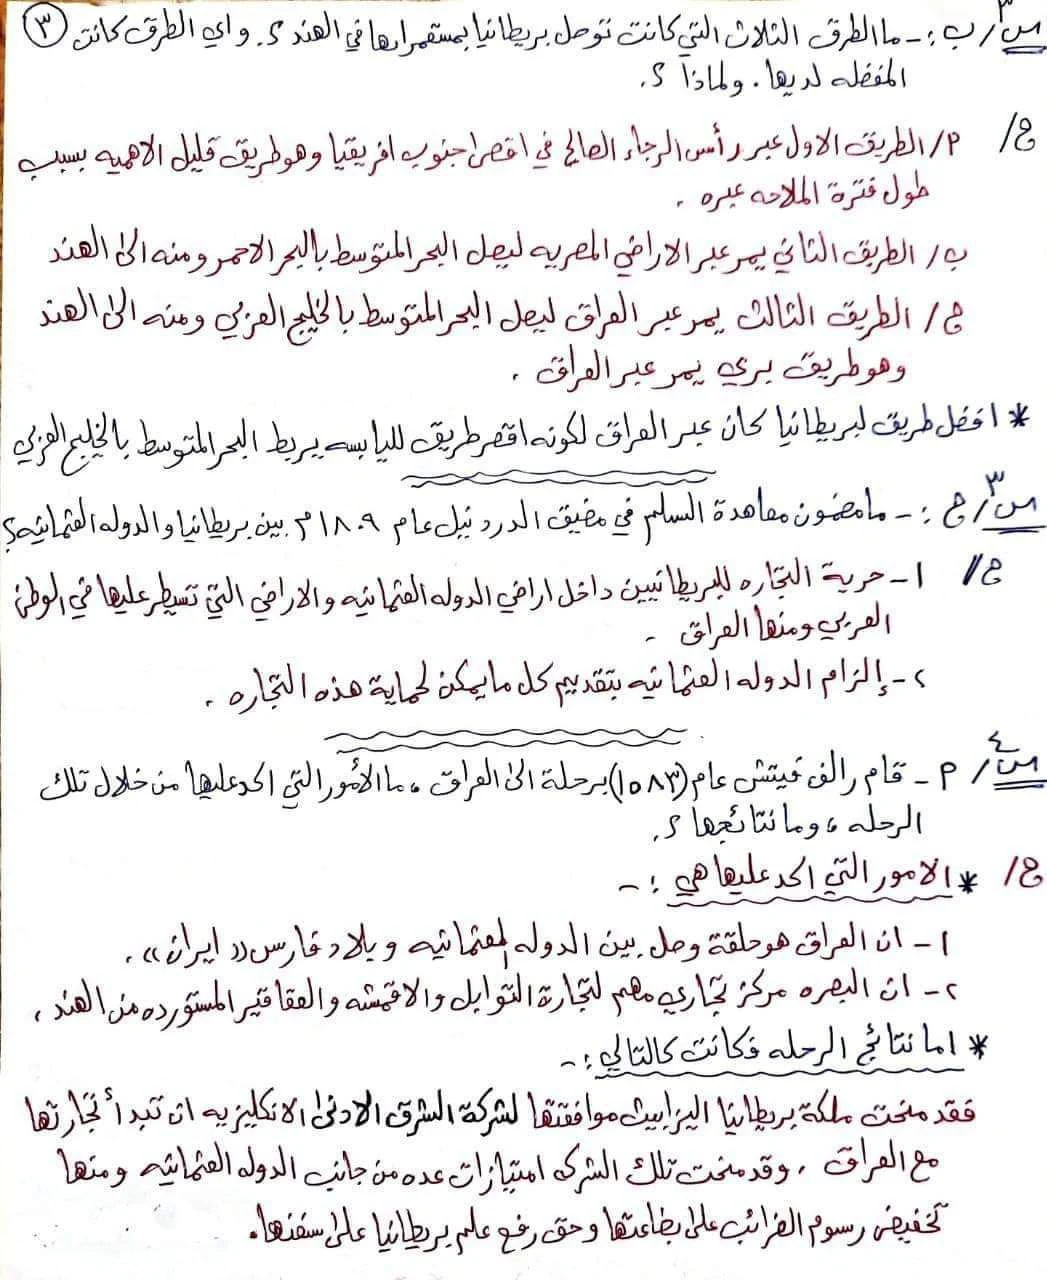 س٣/ب :- ما الطرق الثلاث التي كانت توصل بريطانيا بمستعمراتها في الهند ؟. واي الطرق كانت ٣
المفضله لديها . ولماذا ؟.
ج/ أ/ الطريق الاول عبر رأس الرجاء الصالح في اقصى جنوب افريقيا وهو طريق قليل الاهميه بسبب
طول فترة الملاحه عبره .
ب/ الطريق الثاني يمر عبر الاراضي المصريه ليصل البحر المتوسط بالبحر الاحمر ومنه الى الهند
ج/ الطريق الثالث يمر عبر العراق ليصل البحر المتوسط بالخليج العربي ومنه الى الهند
وهو طريق بري يمر عبر العراق .
* افضل طريق لبريطانيا كان عبر العراق لكونه اقصر طريق لليابسه يربط البحر المتوسط بالخليج العربي
س٣/ج :- ما مضمون معاهدة السلم في مضيق الدردنيل عام ١٨٠٩م بين بريطانيا والدوله العثمانيه؟
ج// ١- حرية التجاره للبريطانيين داخل اراضي الدوله العثمانيه والاراضي التي تسيطر عليها في الوطن
العربي ومنها العراق .
٢- إلزام الدوله العثمانيه بتقديم كل مايمكن لحماية هذه التجاره .
س٤/ أ- قام رالف فيتش عام (١٥٨٣) برحلة الى العراق ، ما الأمور التي اكد عليها من خلال تلك
الرحله ، وما نتائجها ؟.
ج/ * الامور التي اكد عليها هي :-
١- ان العراق هو حلقة وصل بين الدوله العثمانيه وبلاد فارس (( ايران )) .
٢- ان البصره مركز تجاري مهم لتجارة التوابل والاقمشه والعقاقير المستورده من الهند .
* اما نتائج الرحله فكانت كالتالي :-
فقد منحت ملكة بريطانيا اليزابيث موافقتها لشركة الشرق الادنى الانكليزيه ان تبدأ تجارتها
مع العراق . وقد منحت تلك الشركه امتيازات عده من جانب الدوله العثمانيه ومنها
تخفيض رسوم الضرائب على بضاعتها وحق رفع علم بريطانيا على سفنها.